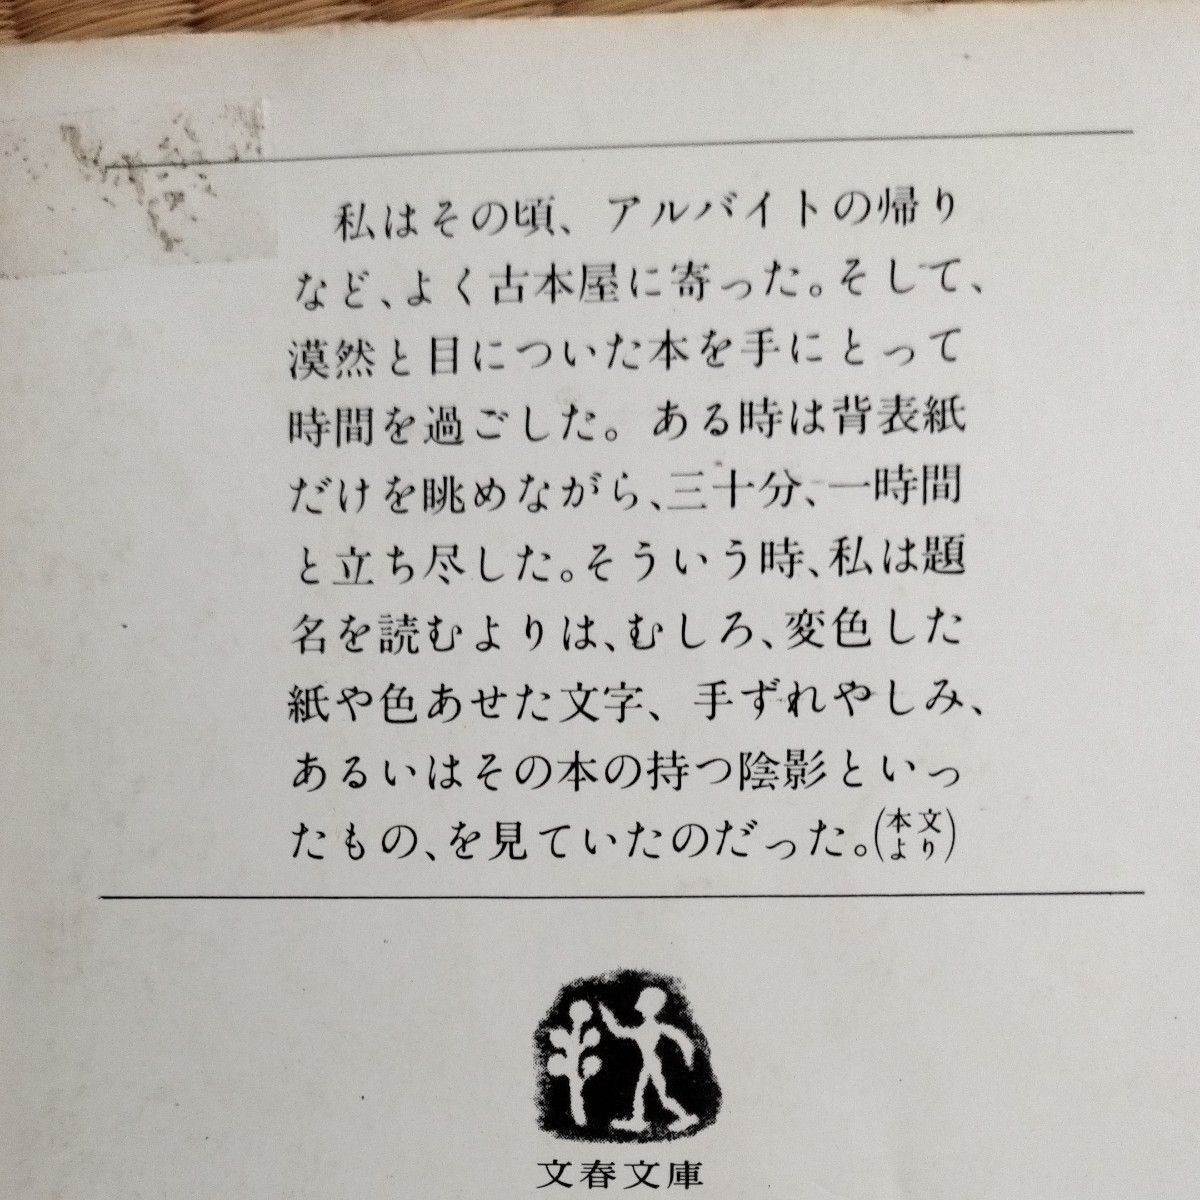 私はその頃、アルバイトの帰り
など、よく古本屋に寄った。そして、
漠然と目についた本を手にとって
時間を過ごした。ある時は背表紙
だけを眺めながら、三十分、一時間
と立ち尽した。そういう時、私は題
名を読むよりは、むしろ、変色した
紙や色あせた文字、手ずれやしみ、
あるいはその本の持つ陰影といっ
たもの、を見ていたのだった。(本文より)
文春文庫